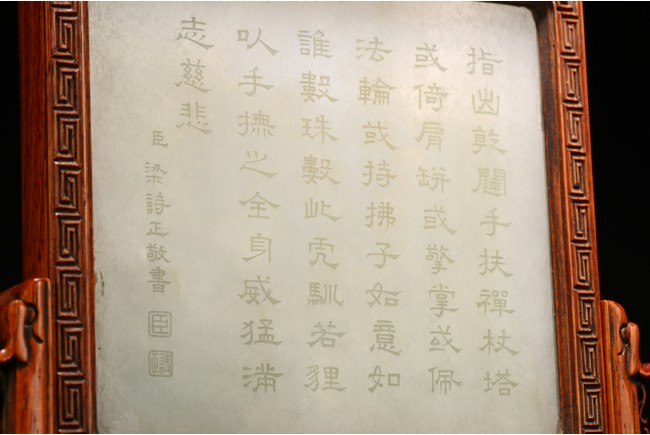 指乾闥手扶禪杖塔
或倚肩缾或擎掌或佩
法輪或持拂子如意如
誰數珠數此虎馴若貍
以手撫之全身威猛滿
志慈悲
臣梁詩正敬書
臣